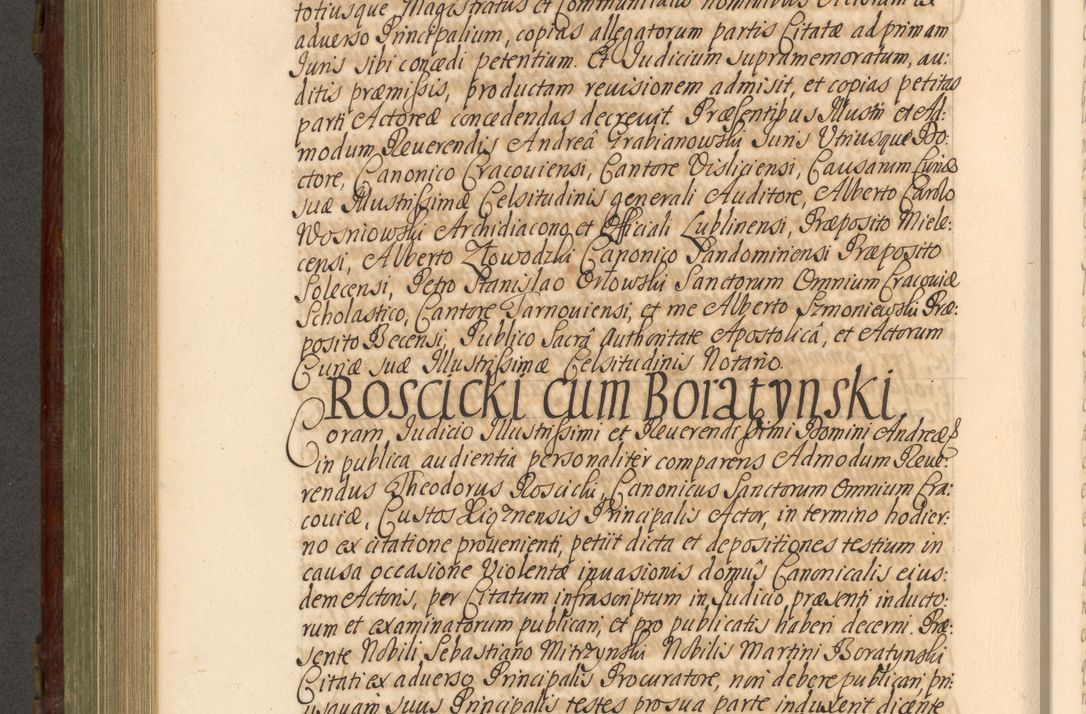 totiusque Magistratus et Communitatis nominibus Actorum ex
adverso Principalium, copias allegatorum partis Citatæ ad primam
Juris sibi concedi petentium. Et Judicium supramemoratum, au:
ditis præmissis, productam revisionem admisit, et copias petitas
parti Actoreæ concedendas decrevit. Præsentibus Illustri et Ad:
modum Reverendis Andreâ Grabianowski Juris Utriusque Do:
ctore, Canonico Cracoviensi, Cantore Visliciensi, Causarum Curiæ
suæ Illustrissimæ Celsitudinis generali Auditore, Alberto Carolo
Wosniowski Archidiacono et Officiali Lublinensi, Præposito Miele:
censi, Alberto Złowodzki Canonico Sandomiriensi Præposito
Solecensi, Petro Stanislao Orłowski Sanctorum Omnium Cracoviæ
Scholastico, Cantore Tarnoviensi, et me Alberto Szmoniewski Præ:
posito Becensi, Publico Sacrâ Authoritate Apostolicâ, et Actorum
Curiæ suæ Illustrissimæ Celsitudinis Notario.
Roscicki cum Boratynski
Coram Judicio Illustrissimi et Reverendissimi Domini Andreæ
in publica audientia personaliter comparens Admodum Reve:
rendus Theodorus Roscicki, Canonicus Sanctorum Omnium Cra:
coviæ, Custos Principalis Actor, in termino hodier:
no ex citatione provenienti, petiit dicta et depositiones testium in
causa occasione Violentæ invasionis domûs Canonicalis eius:
dem Actoris, per Citatum infrascriptum in Judicio præsenti inducto:
rum et examinatorum publicari, et pro publicatis haberi decerni. Præ:
sente Nobili Sebastiano Mitrzynski Nobilis Martini Boratynski
Citati ex adverso Principalis Procuratore, non debere publicari, pri:
usquam suus Principalis testes pro sua parte induxerit dicente